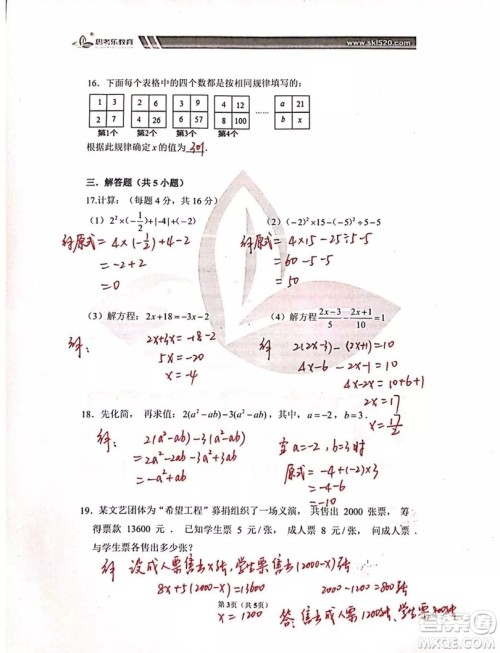 思考乐教育
www.skl520.com
16. 下面每个表格中的四个数都是按相同规律填写的:
1 3 2 6 4 12 a 21
2 7 4 26 6 57 8 100 …… b x
第1个 第2个 第3个 第4个
根据此规律确定 x 的值为 301.
三. 解答题（共 5 小题）
17.计算:（每题 4 分，共 16 分）
（1）2²×(-1/2)+|-4|+(-2)
（2）(-2)²×15-(-5)²÷5-5
解原式 = 4×(-1/2)+4-2
= -2+2
= 0
解原式 = 4×15-25÷5-5
= 60-5-5
= 50
（3）解方程: 2x+18=-3x-2
（4）解方程 (2x-3)/5-(2x+1)/10=1
解: 2x+3x=-18-2
5x=-20
x=-4
解 2(2x-3)-(2x+1)=10
4x-6-2x-1=10
4x-2x=10+6+1
2x=17
x=17/2
18. 先化简，再求值: 2(a²-ab)-3(a²-ab), 其中, a=-2, b=3.
解: 2(a²-ab)-3(a²-ab)
=2a²-2ab-3a²+3ab
=-a²+ab
当a=-2, b=3时
原式=-4+(-2)×3
=-4-6
=-10
19. 某文艺团体为“希望工程”募捐组织了一场义演，共售出 2000 张票，筹
得票款 13600 元．已知学生票 5 元/张，成人票 8 元/张，问成人票
与学生票各售出多少张?
解 设成人票售出x张,学生票售出(2000-x)张
8x+5(2000-x)=13600
第3页（共5页）
x=1200 答:售出成人票1200张,学生票800张
答案圈
MXQE.COM